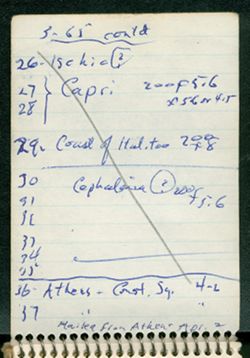 3-65 contd
26- Ischia ?
27 } Capri 200 f 5.6
28 + 5.6 or 4.5
29 - Coast of 200
+8
30 Cephalonia ? 200
31 + 5.6
32
33
34
35
36- Athens - Const. Sq. 4-2
37 " "
Mailed from Athens Apr. 2